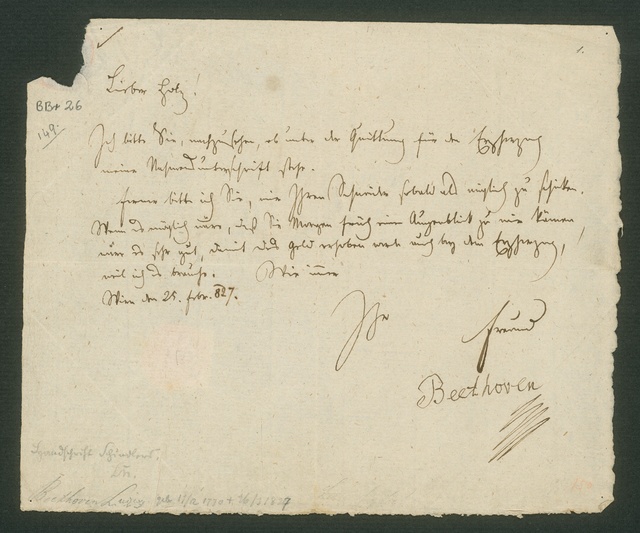 1.
BBr 26
149.
Lieber Holz!
Ich bitte Sie, nachzusehen, ob unter der Quittung für den Erzherzog
meine Nahmensunterschrift stehe.
ferner bitte ich Sie, mir Ihren Schneider sobald als möglich zu schicken.
Wenn es möglich wäre, daß Sie Morgen früh einen Augenblick zu mir kämen,
wäre es sehr gut, damit das Geld erhoben werde auch bey dem Erzherzog,
weil ich es brauche. Wie immer
Wien den 25. febr. 827.
Ihr Freund
Beethoven
Handschrift Schindlers.
Beethoven Ludwig geb 1770 + 26/3 1827